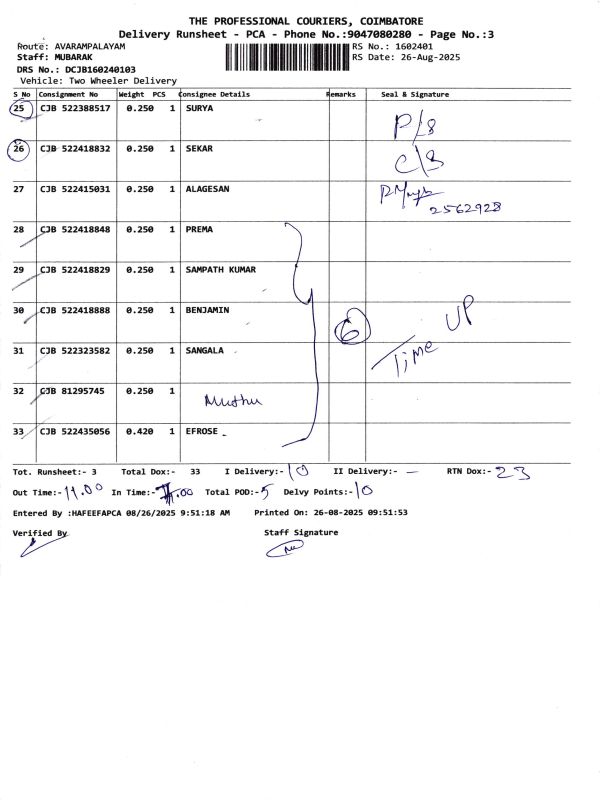 THE PROFESSIONAL COURIERS, COIMBATORE
Delivery Runsheet - PCA - Phone No.:9047080280 - Page No.:3
Route: AVARAMPALAYAM RS No.: 1602401
Staff: MUBARAK RS Date: 26-Aug-2025
DRS No.: DCJB160240103
Vehicle: Two Wheeler Delivery
S No Consignment No Weight PCS Consignee Details Remarks Seal & Signature
25 CJB 522388517 0.250 1 SURYA P/8
26 CJB 522418832 0.250 1 SEKAR C\8
27 CJB 522415031 0.250 1 ALAGESAN
2562928
28 CJB 522418848 0.250 1 PREMA
29 CJB 522418829 0.250 1 SAMPATH KUMAR
30 CJB 522418888 0.250 1 BENJAMIN 6 Time UP
31 CJB 522323582 0.250 1 SANGALA
32 CJB 81295745 0.250 1 Muthu
33 CJB 522435056 0.420 1 EFROSE
Tot. Runsheet:- 3 Total Dox:- 33 I Delivery:- 10 II Delivery:- — RTN Dox:- 23
Out Time:- 11.00 In Time:- .00 Total POD:- 5 Delvy Points:- 10
Entered By :HAFEEFAPCA 08/26/2025 9:51:18 AM Printed On: 26-08-2025 09:51:53
Verified By Staff Signature